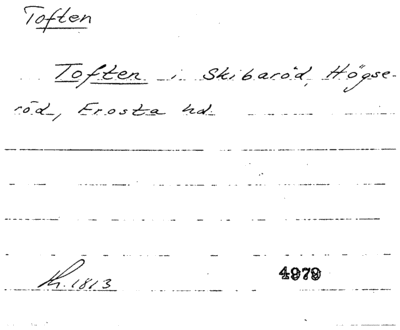 Toften
Toften i Skibaröd, Högse-
röd, Frosta hd.
Kh. 1813
4979